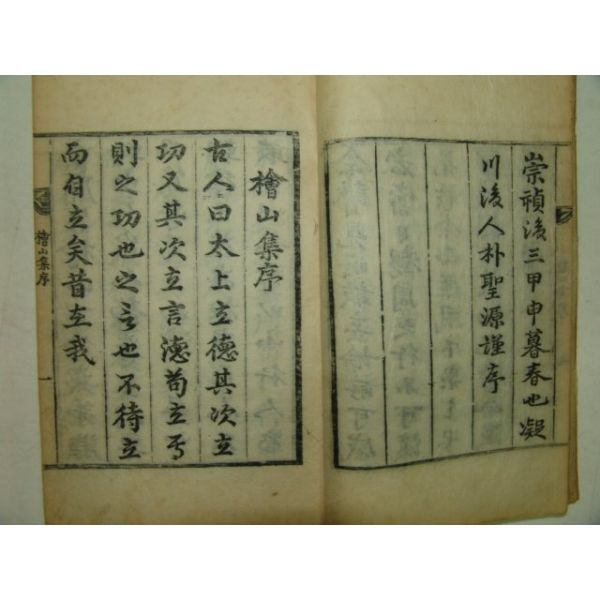 崇禎後三甲申暮春也凝
川後人朴聖源謹序
檜山集序
古人曰太上立德其次立
功又其次立言德苟立焉
則之功也之言也不待立
而自立矣昔在我
檜山集序
一